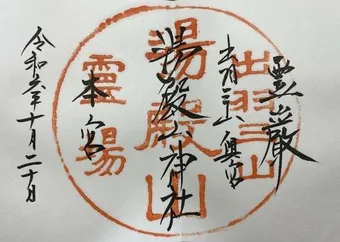 靈巌
三山奥宮
湯殿山神社
本宮
令和六年十月二十日
出羽三山
湯殿山
靈場